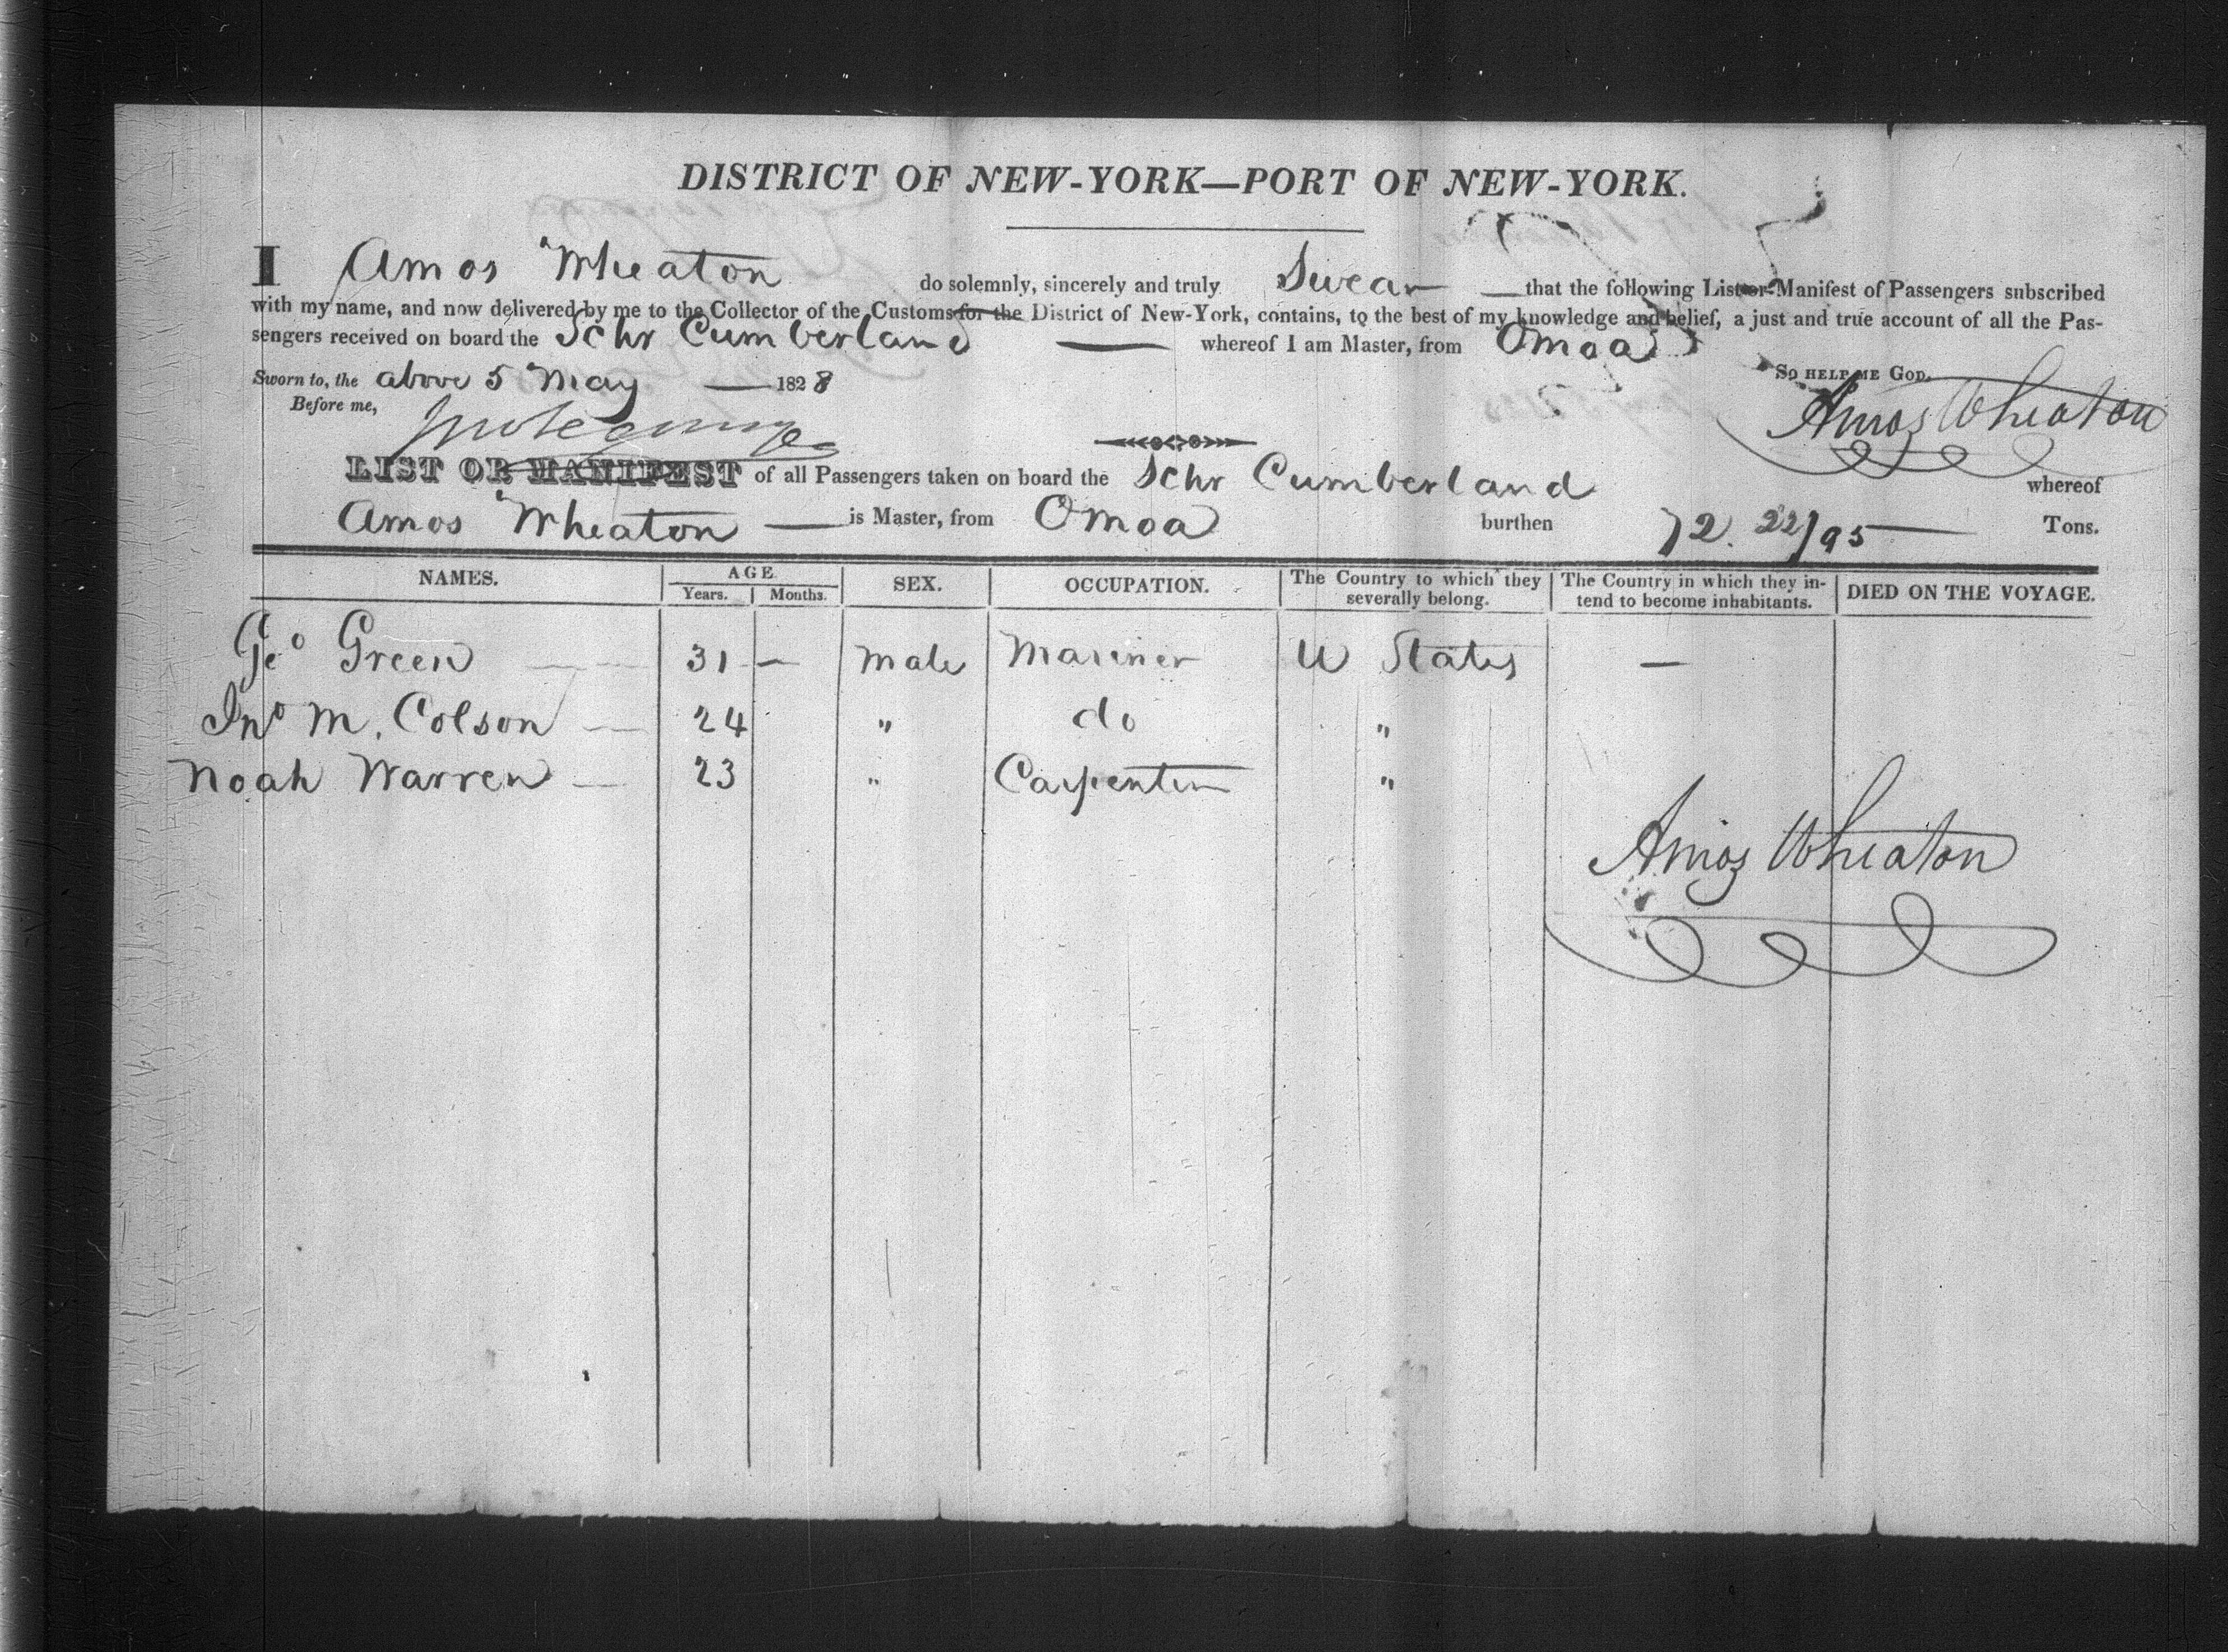 DISTRICT OF NEW-YORK—PORT OF NEW-YORK.
I Amos Wheaton do solemnly, sincerely and truly Swear — that the following List or Manifest of Passengers subscribed
with my name, and now delivered by me to the Collector of the Customs for the District of New-York, contains, to the best of my knowledge and belief, a just and true account of all the Pas-
sengers received on board the Schr Cumberland — whereof I am Master, from Omoa
Sworn to, the above 5 May — 1828 So HELP ME GOD.
Before me, Amos Wheaton
LIST OR MANIFEST of all Passengers taken on board the Schr Cumberland whereof
Amos Wheaton — is Master, from Omoa burthen 72. 22/95 — Tons.
NAMES. AGE SEX. OCCUPATION. The Country to which they severally belong. The Country in which they in-tend to become inhabitants. DIED ON THE VOYAGE.
Years. Months.
Geo Green — 31 — male Mariner U States —
Jno M. Colson — 24 " do "
Noah Warren — 23 " Carpenter "
Amos Wheaton